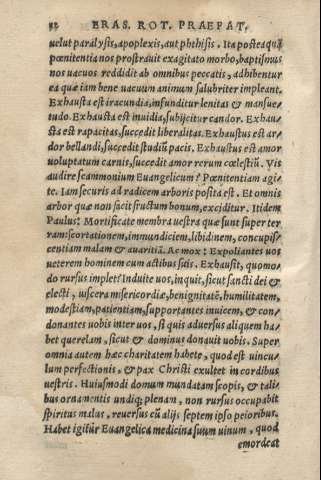 ERAS. ROT. PRAEFAT.
uelut paralysis, apoplexis, aut phthisis. Ita posteaquā
pœnitentia nos prostrauit exagitato morbo, baptismus
nos uacuos reddidit ab omnibus peccatis, adhibentur
ea quæ iam bene uacuum animum salubriter impleant.
Exhausta est iracundia, infunditur lenitas & mansue/
tudo. Exhausta est inuidia, subijcitur candor. Exhau/
sta est rapacitas, succedit liberalitas. Exhaustus est ar/
dor bellandi, succedit studiũ pacis. Exhaustus est amor
uoluptatum carnis, succedit amor rerum cœlestiũ. Vis
audire scammonium Euangelicum? Pœnitentiam agi/
te. Iam securis ad radicem arboris posita est. Et omnis
arbor quæ non facit fructum bonum, exciditur. Itidem
Paulus: Mortificate membra uestra quæ sunt super ter
ram: scortationem, immundiciem, libidinem, concupis/
centiam malam & auaritiā. Ac mox: Expoliantes uos
ueterem hominem cum actibus suis. Exhausit, quomo/
do rursus implet? Induite uos, inquit, sicut sancti dei &
electi, uiscera misericordiæ, benignitatē, humilitatem,
modestiam, patientiam, supportantes inuicem, & con/
donantes uobis inter uos, si quis aduersus aliquem ha/
bet querelam, sicut & dominus donauit uobis. Super
omnia autem hæc charitatem habete, quod est uincu/
lum perfectionis, & pax Christi exultet in cordibus
uestris. Huiusmodi domum mundatam scopis, & tali/
bus ornamentis undiq; plenam, non rursus occupabit
spiritus malus, reuersus cũ alijs septem ipso peioribus.
Habet igitur Euangelica medicina suum uinum, quod
emordeat